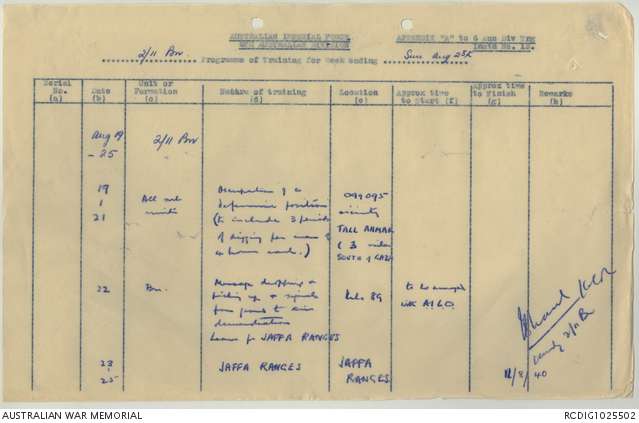 AUSTRALIAN IMPERIAL FORCE
6TH AUSTRALIAN DIVISION
APPENDIX "A" to 6 Aus Div Trg
Instn No. 10.
2/11 Bn.
Programme of Training for Week ending Sun Aug 25th
Serial No. (a)
Date (b)
Unit or Formation (c)
Nature of training (d)
Location (e)
Approx time to Start (f)
Approx time to Finish (g)
Remarks (h)
Aug 19 - 25
2/11 Bn
19
21
All sub units
Occupation of a
defensive position
(to include 3 periods
of digging per man of
4 hours each.)
099095
vicinity
TALL AHMAR
(3 miles
SOUTH of GAZA
22
Bn.
Message dropping &
picking up & signals
from ground to air
demonstration
Leave for JAFFA RANGES
Kilo 89
to be arranged
with AILO
23
25
JAFFA RANGES
JAFFA
RANGES
Comdg 2/11 Bn
12/8/40
AUSTRALIAN WAR MEMORIAL
RCDIG1025502